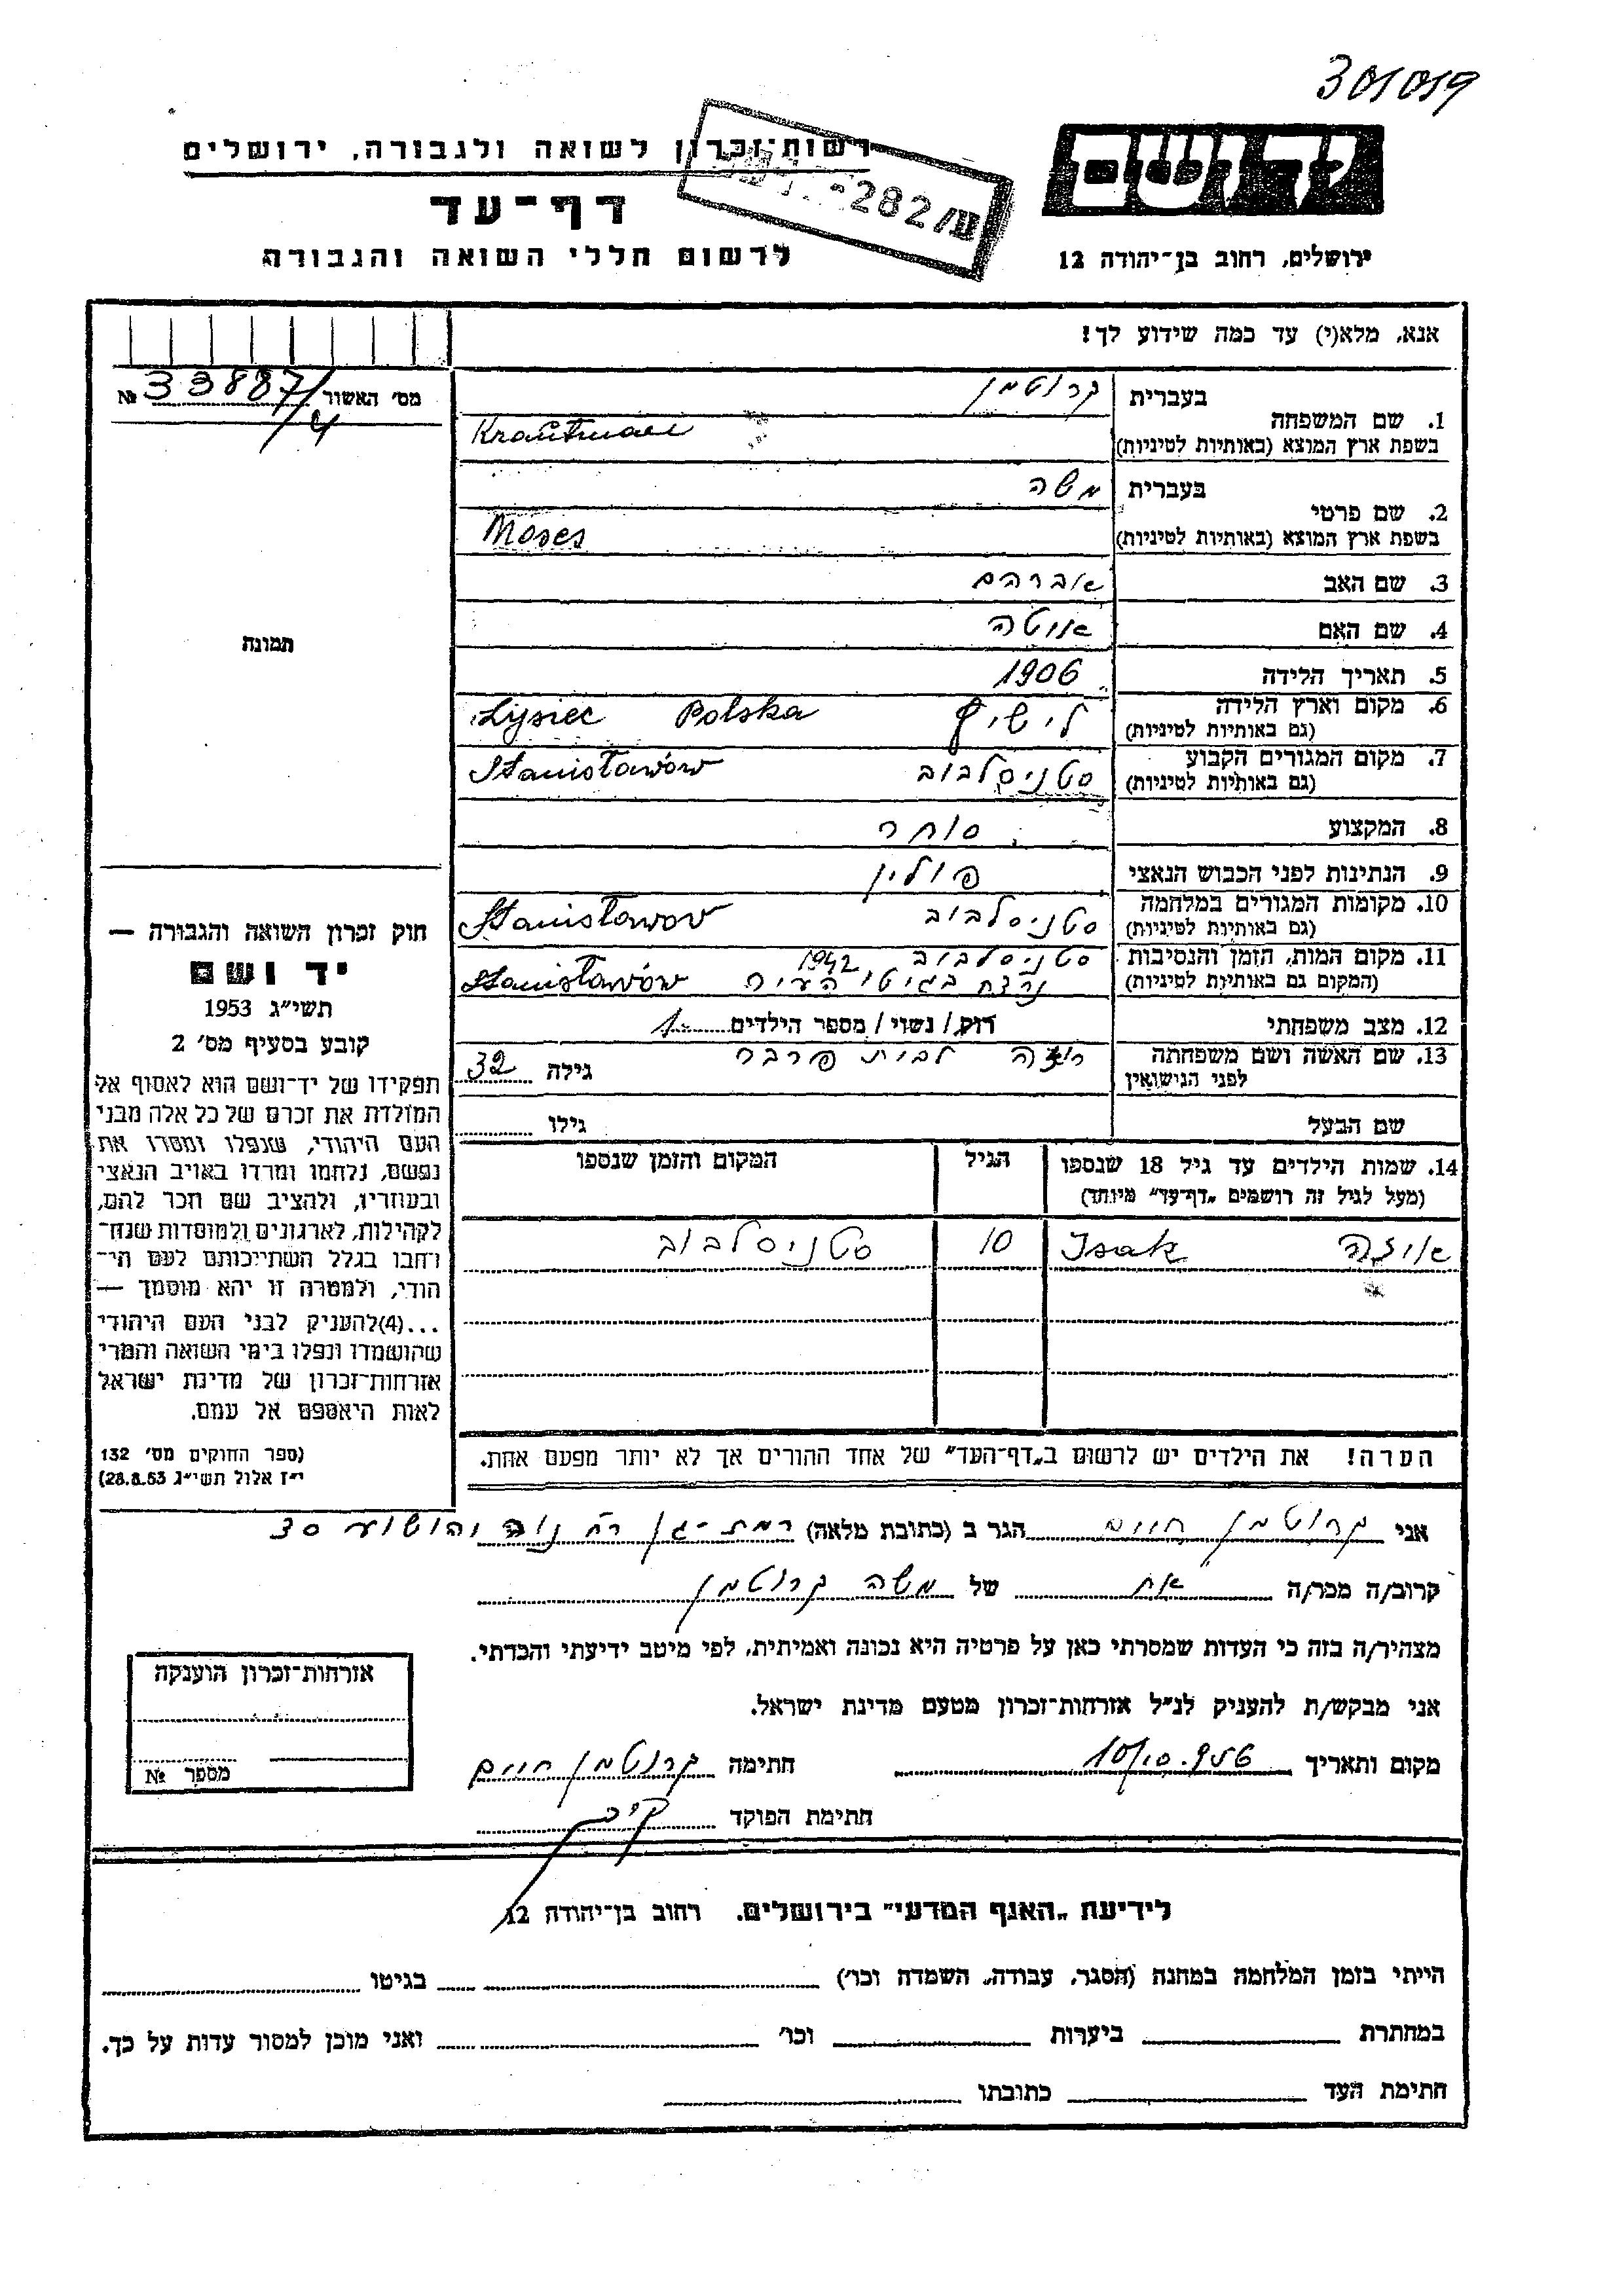 301019
יד ושם
ירושלים, רחוב בן־יהודה 12
רשות־זכרון לשואה ולגבורה, ירושלים
דף־עד
לרשום חללי השואה והגבורה
ע/282-
אנא, מלא(י) עד כמה שידוע לך!
מס׳ האשור 33887/4 №
1. שם המשפחה
בעברית קרוטמן
בשפת ארץ המוצא (באותיות לטיניות) Krautman
2. שם פרטי
בעברית משה
בשפת ארץ המוצא (באותיות לטיניות) Moses
3. שם האב אברהם
4. שם האם אוטה
5. תאריך הלידה 1906
6. מקום וארץ הלידה
(גם באותיות לטיניות) לישיץ Lysiec Polska
7. מקום המגורים הקבוע
(גם באותיות לטיניות) סטניסלבוב Stanisławów
8. המקצוע סוחר
9. הנתינות לפני הכבוש הנאצי פולין
10. מקומות המגורים במלחמה
(גם באותיות לטיניות) סטניסלבוב Stanisławov
11. מקום המות, הזמן והנסיבות סטניסלבוב 1942
(המקום גם באותיות לטיניות) נרצח בגיטו העיר Stanisławów
12. מצב משפחתי רווק / נשוי / מספר הילדים 1
13. שם האשה ושם משפחתה לבית פרבר גילה 32
לפני הנישואין
שם הבעל גילו
14. שמות הילדים עד גיל 18 שנספו הגיל המקום והזמן שנספו
(מעל לגיל זה רושמים „דף־עד” מיוחד)
איזה Isak 10 סטניסלבוב
הערה! את הילדים יש לרשום ב„דף־העד” של אחד ההורים אך לא יותר מפעם אחת.
תמונה
חוק זכרון השואה והגבורה —
יד ושם
תשי״ג 1953
קובע בסעיף מס׳ 2
תפקידו של יד־ושם הוא לאסוף אל
המולדת את זכרם של כל אלה מבני
העם היהודי, שנפלו ומסרו את
נפשם, נלחמו ומרדו באויב הנאצי
ובעוזריו, ולהציב שם וזכר להם,
לקהילות, לארגונים ולמוסדות שנח־
רבו בגלל השתייכותם לעם הי־
הודי, ולמטרה זו יהא מוסמך —
...(4) להעניק לבני העם היהודי
שהושמדו ונפלו בימי השואה והמרי
אזרחות־זכרון של מדינת ישראל
לאות היאספם אל עמם.
(ספר החוקים מס׳ 132
י״ז אלול תשי״ג 28.8.53)
אני קרוטמן חיים הגר ב (כתובת מלאה) רמת-גן רח׳ נוה יהושוע 30
קרוב/ה מכר/ה אח של משה קרוטמן
מצהיר/ה בזה כי העדות שמסרתי כאן על פרטיה היא נכונה ואמיתית, לפי מיטב ידיעתי והכרתי.
אני מבקש/ת להעניק לנ״ל אזרחות־זכרון מטעם מדינת ישראל.
מקום ותאריך 10/10.956 חתימה קרוטמן חיים
חתימת הפוקד
אזרחות־זכרון הוענקה
מספר №
לידיעת „האגף המדעי” בירושלים, רחוב בן־יהודה 12
הייתי בזמן המלחמה במחנה (הסגר, עבודה, השמדה וכו׳) בגיטו
במחתרת ביערות וכו׳ ואני מוכן למסור עדות על כך.
חתימת העד כתובתו